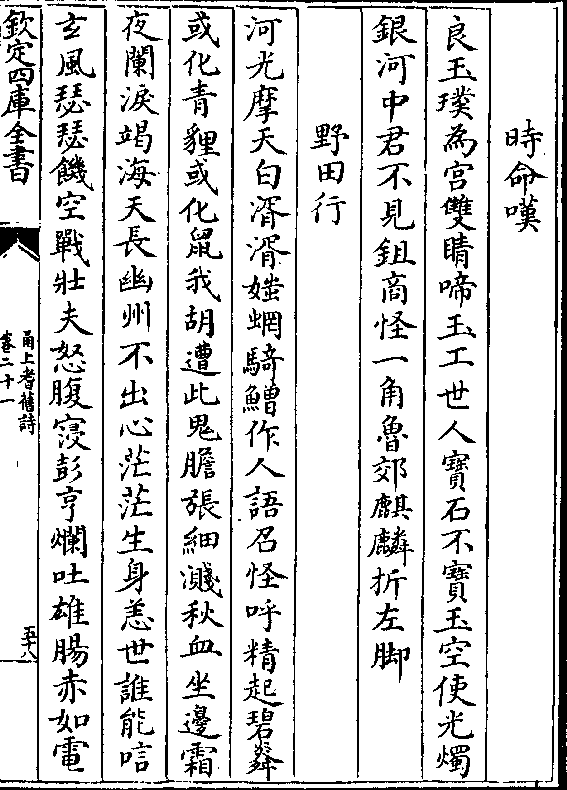 時命嘆
良玉璞為宮雙睛啼玉工世人寶石不寶玉空使光燭
銀河中君不見鉏商怪一角魯郊麒麟折左脚
野田行
河光摩天白湑湑媸蜩騎鱛作人語召怪呼精起碧粦
或化青貍或化鼠我胡遭此鬼膽張細濺秋血坐邊霜
夜闌淚竭海天長幽州不出心茫茫生身恙世誰能唁
玄風瑟瑟饑空戰壯夫怒腹寖彭亨爛吐雄腸赤如電
欽定四庫全書
甬上耆舊詩
卷二十一
五十八